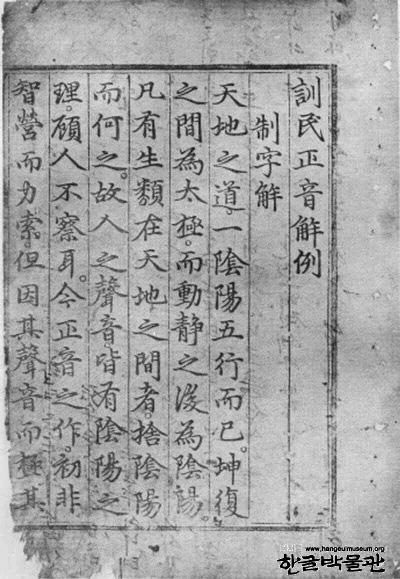 訓民正音解例
制字解
天地之道。一陰陽五行而已。坤復
之間為太極。而動靜之後為陰陽。
凡有生類在天地之間者。捨陰陽
而何之。故人之聲音皆有陰陽之
理。顧人不察耳。今正音之作。初非
智營而力索。但因其聲音而極其
www.hangeulmuseum.org
한글박물관